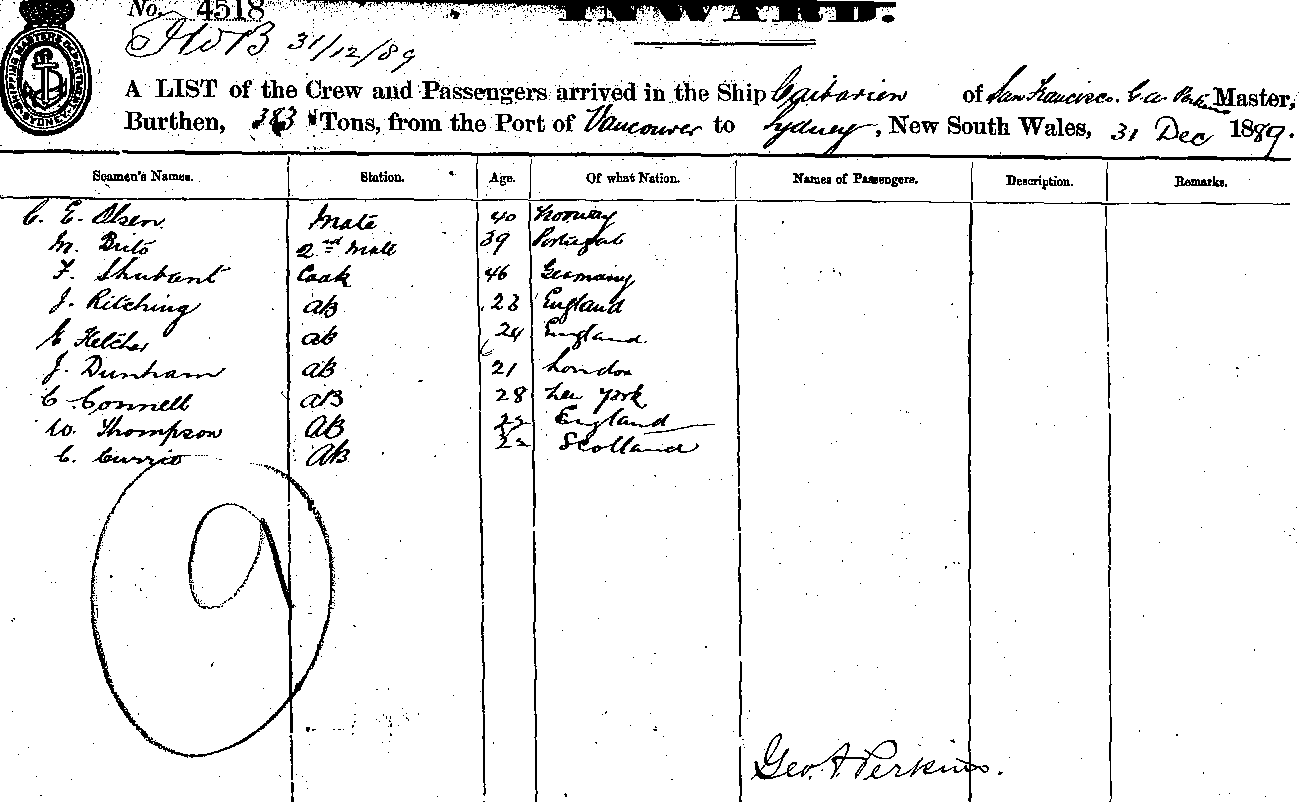 No. 4518 INWARD.
31/12/89
SHIPPING MASTERS DEPARTMENT
A LIST of the Crew and Passengers arrived in the Ship of San Francisco. Master,
Burthen, 383 Tons, from the Port of Vancouver to Sydney, New South Wales, 31 Dec 1889.
Seamen's Names. Station. Age. Of what Nation. Names of Passengers. Description. Remarks.
C. E. Olsen Mate 40 Norway
M. Brito 2nd Mate 39 Portugal
F. Shubant Cook 46 Germany
J. Ritching AB 23 England
Fletcher AB 24 England
J. Dunham AB 21 London
C Connell AB 28 New York
W. Thompson AB 22 England
C. Currie AB 22 Scotland
9
Geo. A. Perkins.